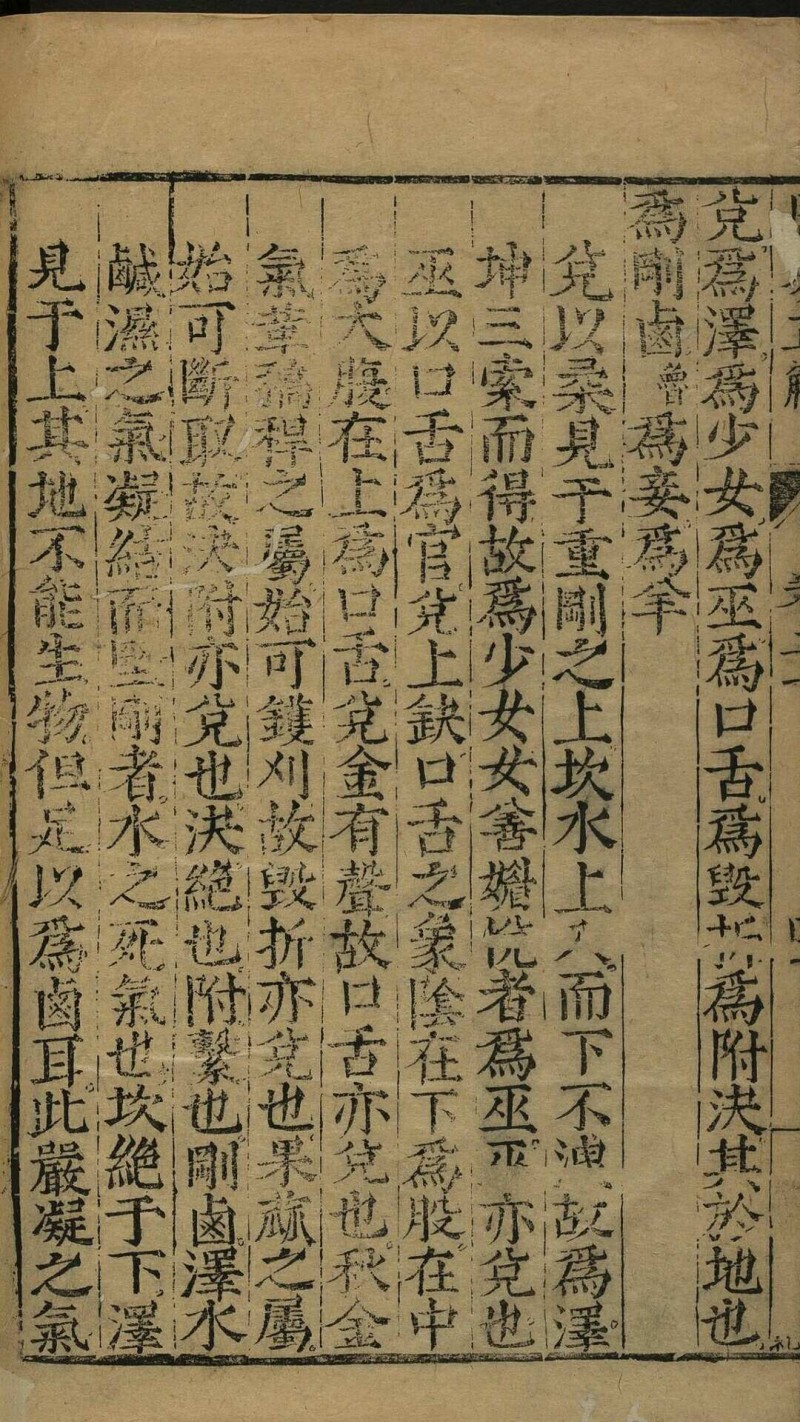 兌爲澤爲少女爲巫爲口舌爲毀折爲附決其於地也
爲剛鹵魯爲妾爲羊
兌以柔見于重剛之上坎水上入而下不洩故爲澤
坤三索而得故爲少女女善媚悅者爲巫巫亦兌也
巫以口舌爲官兌上缺口舌之象陰在下爲股在中
爲大腹在上爲口舌兌金有聲故口舌亦兌也秋金
氣葦稿稈之屬始可鑊刈故毀折亦兌也果蓏之屬
始可斷取故決附亦兌也決絕也附繫也剛鹵澤水
鹹濕之氣凝結而堅剛者水之死氣也坎絕于下澤
見于上其地不能生物但足以爲鹵耳此嚴凝之氣